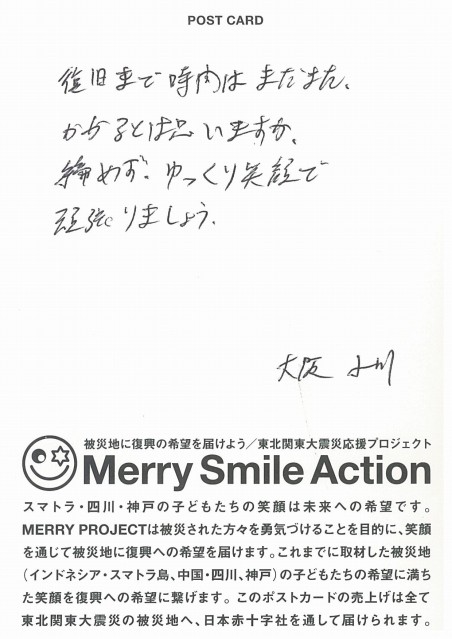 POST CARD
復旧まで時間はまだまだ、
かかるとは思いますが、
諦めず、ゆっくり笑顔で
頑張りましょう。
大阪 小川
被災地に復興の希望を届けよう／東北関東大震災応援プロジェクト
Merry Smile Action
スマトラ・四川・神戸の子どもたちの笑顔は未来への希望です。
MERRY PROJECTは被災された方々を勇気づけることを目的に、笑顔
を通じて被災地に復興への希望を届けます。これまでに取材した被災地
（インドネシア・スマトラ島、中国・四川、神戸）の子どもたちの希望に満ち
た笑顔を復興への希望に繋げます。このポストカードの売上げは全て
東北関東大震災の被災地へ、日本赤十字社を通して届けられます。